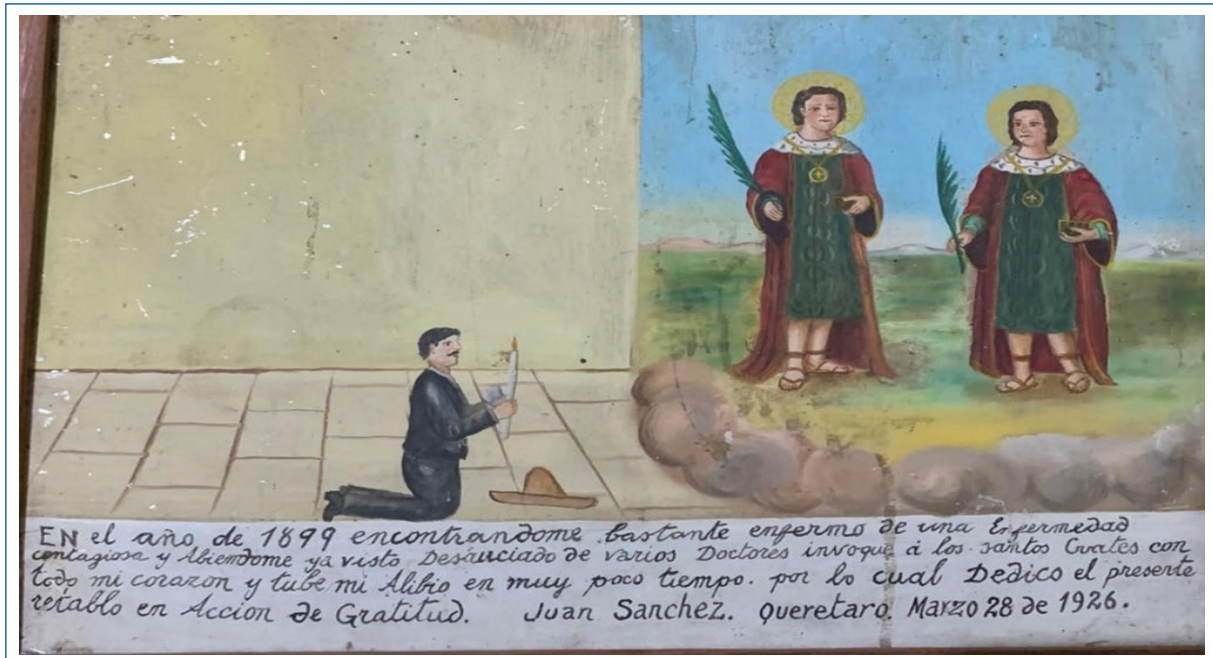 EN el año de 1899 encontrandome bastante enfermo de una Enfermedad
contagiosa y Abiendome ya visto Desauciado de varios Doctores invoque á los santos Cuates con
todo mi corazon y tube mi Alibio en muy poco tiempo. por lo cual Dedico el presente
retablo en Accion de Gratitud. Juan Sanchez. Queretaro. Marzo 28 de 1926.